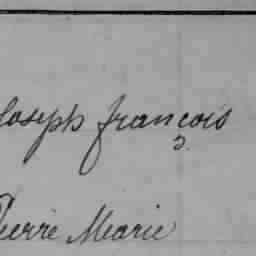 Joseph françois
Pierre Marie